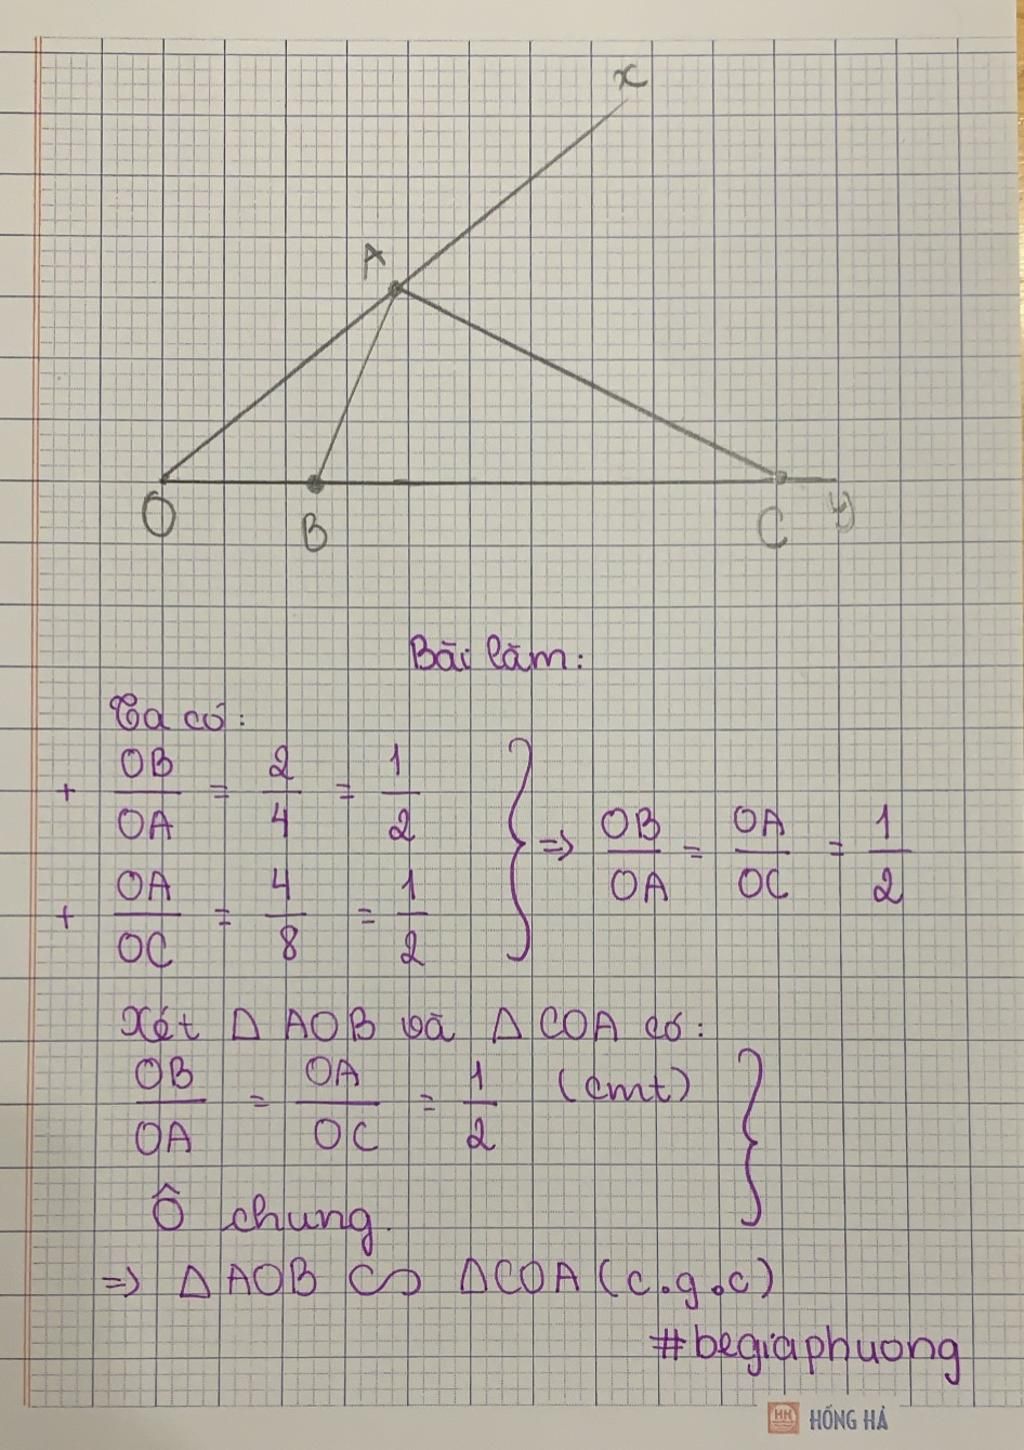 x
A
O B C y
Bài làm:
Ta có:
+ OB/OA = 2/4 = 1/2
+ OA/OC = 4/8 = 1/2
} => OB/OA = OA/OC = 1/2
Xét Δ AOB và Δ COA có:
OB/OA = OA/OC = 1/2 (cmt) }
Ô chung.
=> Δ AOB ∽ Δ COA (c.g.c)
#begiaphuong
HH HỒNG HÀ